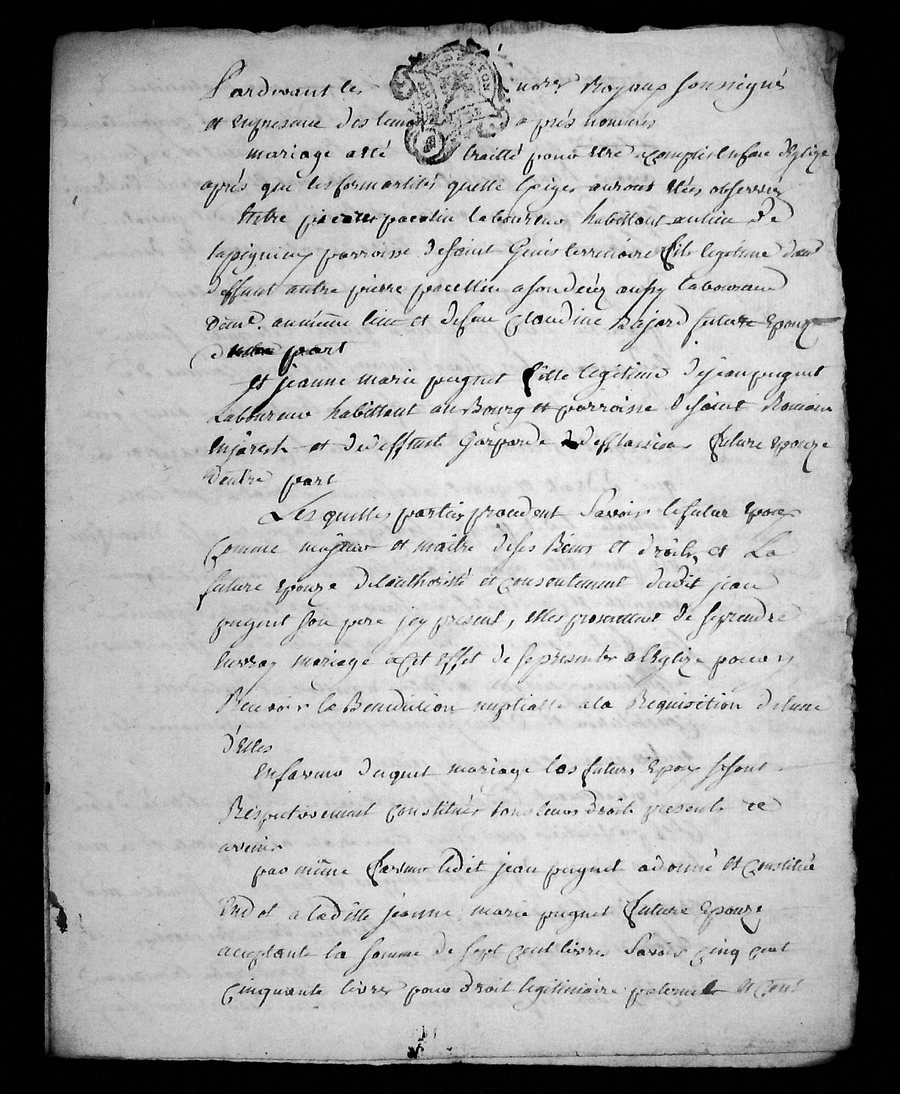 Pardevant les nores Royaux soussignés
et en presence des temoins aprés nommés
mariage a eté traitté pour etre acomplis en face deglize
aprés que les formartités quelle Exiges auront etées observés
Entre pierre pacalin laboureur habittant au lieu de
parroisse de saint Genis terrétoire fils legitime d'un
deffunt autre pierre pacallin a son déces aussy laboureur
dem.t au meme lieu et de feue Claudine Bajard futur Epoux
d'une part
Et jeanne marie puynet fille legitime de jean puynet
Laboureur habittant au Bourg et parroisse de saint Romain
en jarest et de deffunte Gasparde future Epouze
d'autre part
Les quelles parties procedent Savoir le futur Epoux
Comme majeur et maitre de ses Biens et droits, et La
future Epouze de l'authorité et consentement dudit jean
puynet son pere icy present, elles promettent de se prendre
en vray mariage a cet effet de se presenter a l'Eglize pour y
Recevoir la Benediction nuptialle a la Requisition de lune
d'Elles
En faveur duquel mariage les futurs Epoux se sont
Respectivement constitués tous leurs droits presents et
avenir
par meme faveur ledit jean puynet a donné et constitué
En dot a laditte jeanne marie puynet future Epouze
acceptante la somme de sept cent livres Savoir Cinq cent
Cinquante livres pour droit legitimaire paternel et Cent